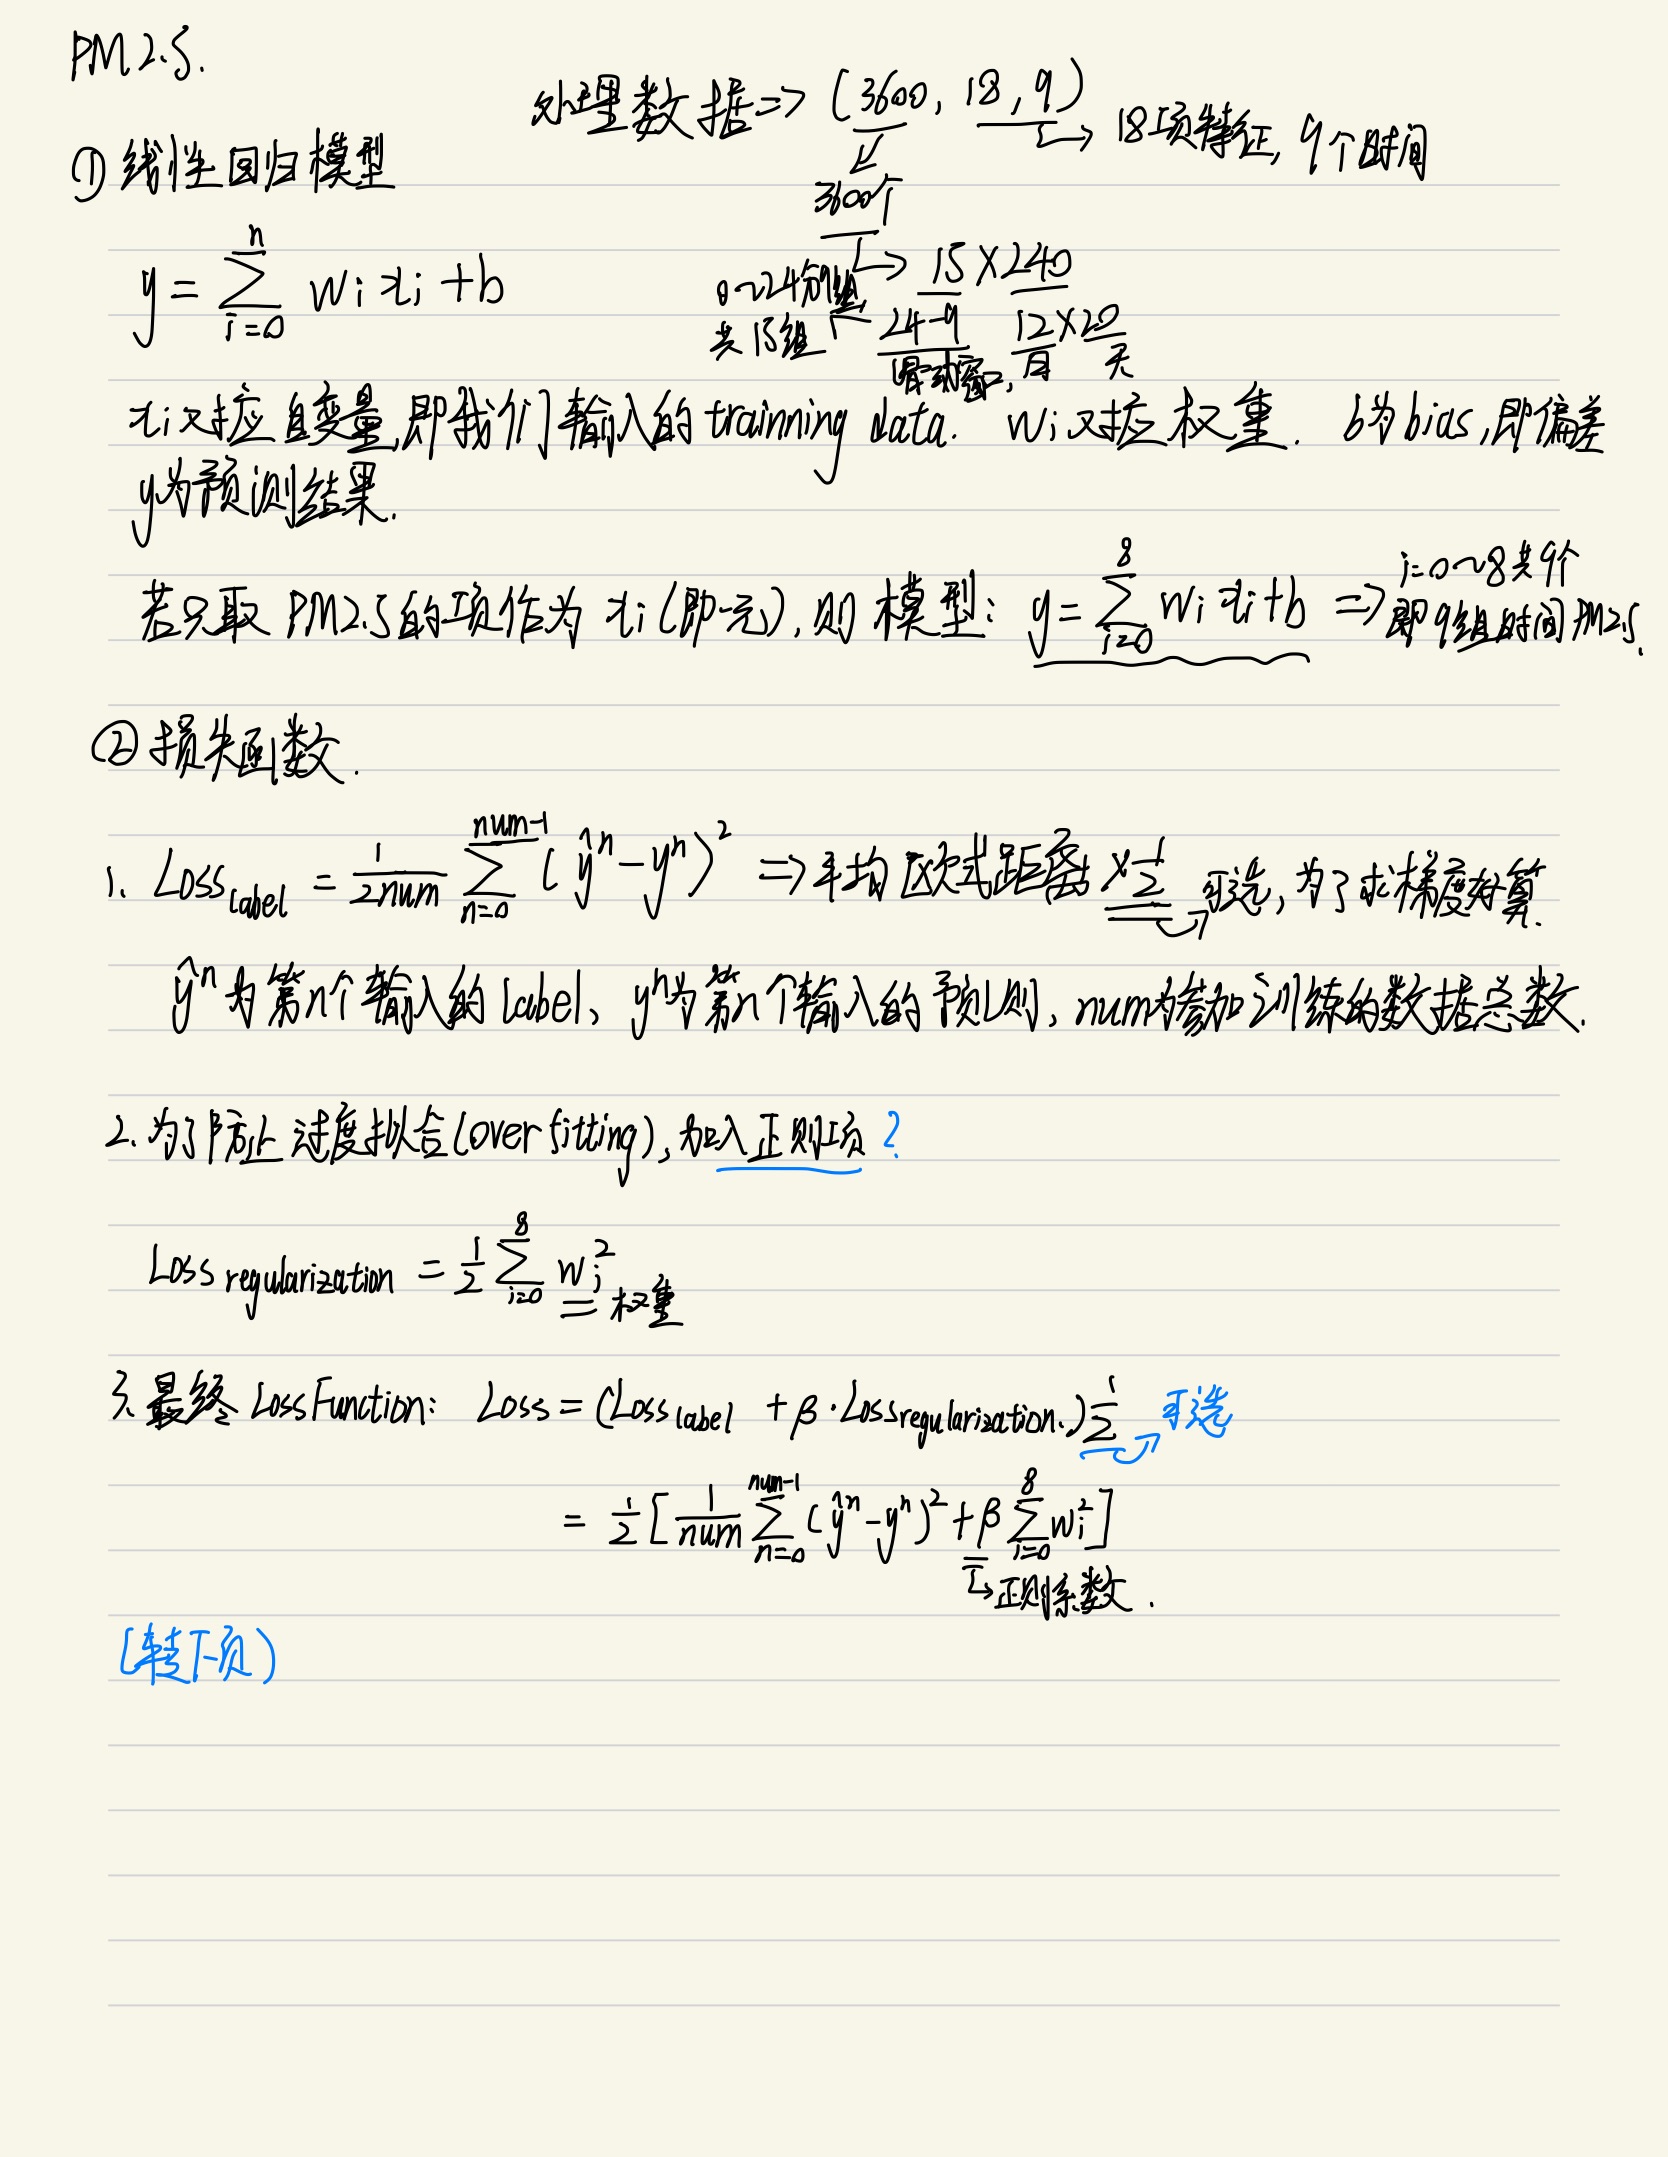 PM2.5.
处理数据=> (3600, 18, 9)
18项特征, 9个时间
① 线性回归模型
3600个
y = \sum_{i=0}^{n} w_i x_i + b
15×240
0~24分9组
共15组
24-9 12×20
滑动窗口, 月 天
x_i对应自变量,即我们输入的trainning data. w_i对应权重. b为bias,即偏差
y为预测结果.
若只取PM2.5的项作为x_i(即一元),则模型: y = \sum_{i=0}^{8} w_i x_i + b => i=0~8共9个
即9组时间PM2.5.
② 损失函数.
1. Loss_{label} = \frac{1}{2num} \sum_{n=0}^{num-1} (\hat{y}^n - y^n)^2 => 平均欧式距离 × \frac{1}{2} 可选, 为了求梯度好算.
\hat{y}^n为第n个输入的label、y^n为第n个输入的预测、num为参加训练的数据总数.
2. 为了防止过度拟合(overfitting),加入正则项?
Loss_{regularization} = \frac{1}{2} \sum_{i=0}^{8} w_i^2
权重
3. 最终LossFunction: Loss = (Loss_{label} + β·Loss_{regularization.}) \frac{1}{2} 可选
= \frac{1}{2} [\frac{1}{num} \sum_{n=0}^{num-1} (\hat{y}^n - y^n)^2 + β \sum_{i=0}^{8} w_i^2]
正则系数.
(转下页)